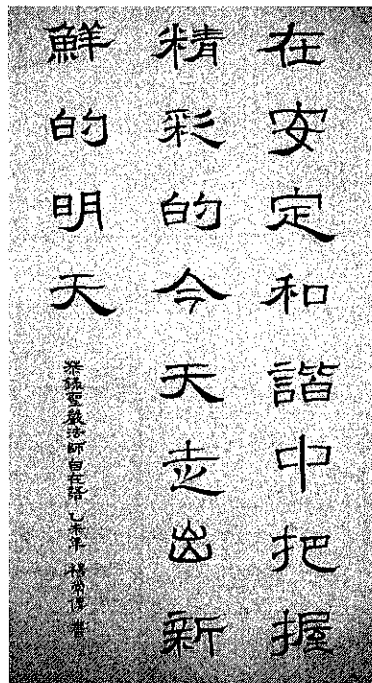 在安定和諧中把握
精彩的今天走出新
鮮的明天
錄聖嚴法師自在語 乙未年 書